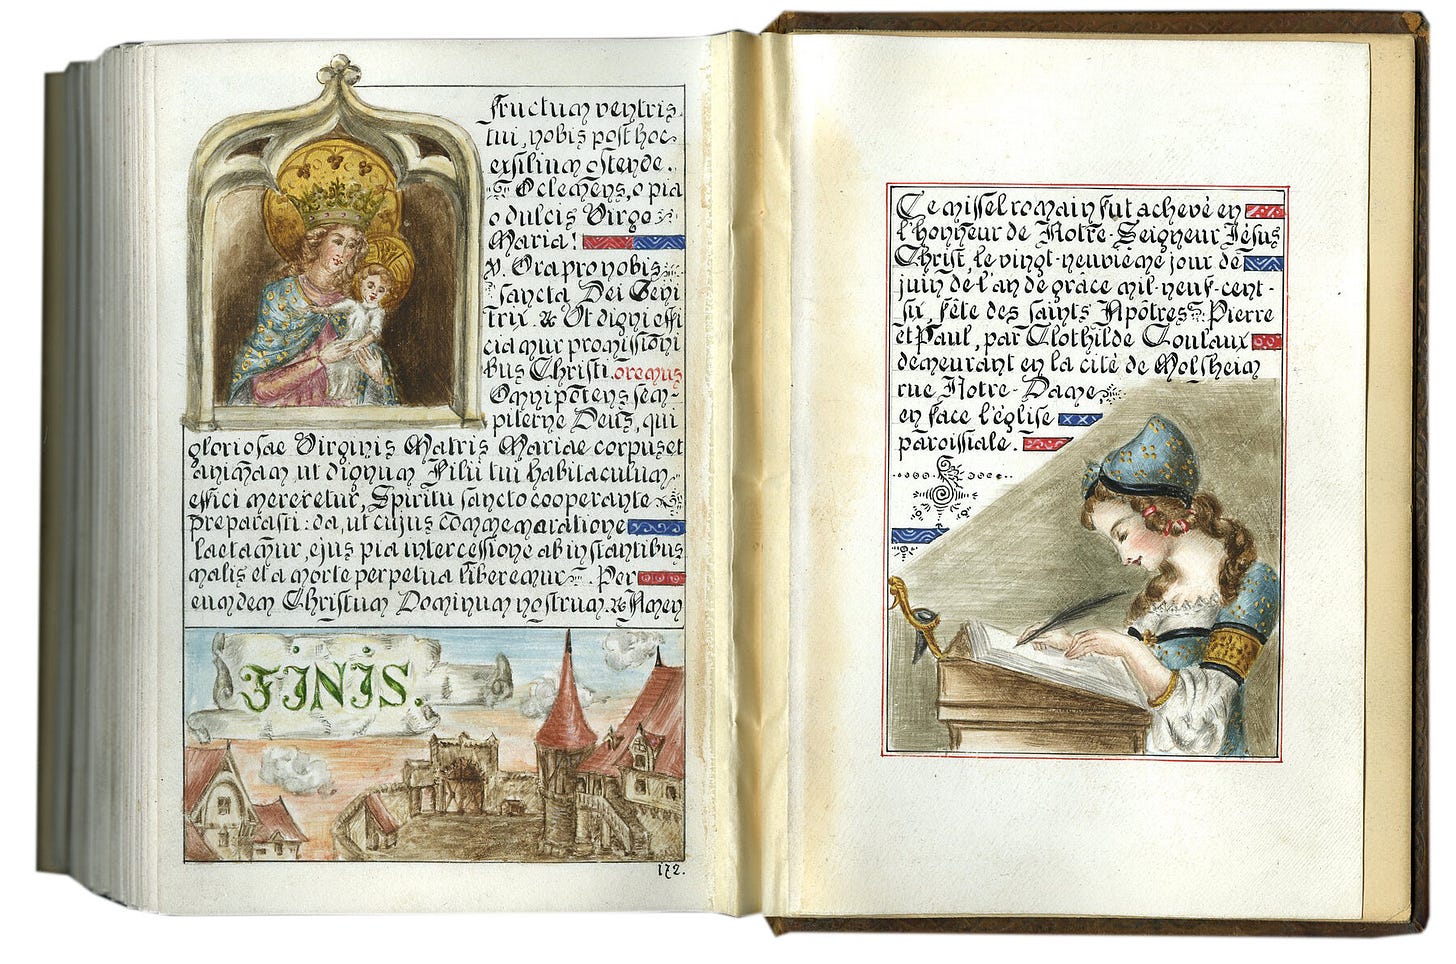 fructum ventris
tui, nobis post hoc
exsilium ostende.
O clemens, o pia
o dulcis Virgo
Maria!
℣. Ora pro nobis
sancta Dei Geni
trix. ℟ Ut digni effi
ciamur promissioni
bus Christi. oremus
Omnipotens sem-
piterne Deus, qui
gloriosae Virginis Matris Mariae corpus et
animam ut dignum Filii tui habitaculum
effici mereretur, Spiritu sancto cooperante
preparasti: da, ut cujus commemoratione
laetamur, ejus pia intercessione ab instantibus
malis et a morte perpetua liberemur. Per
eumdem Christum Dominum nostrum. ℟ Amen
FINIS.
172.
Ce missel romain fut achevé en
l'honneur de Notre-Seigneur Jésus
Christ, le vingt-neuvième jour de
juin de l'an de grâce mil-neuf-cent-
six, fête des saints Apôtres Pierre
et Paul, par Clothilde Coulaux
demeurant en la cité de Molsheim
rue Notre-Dame
en face l'église
paroissiale.